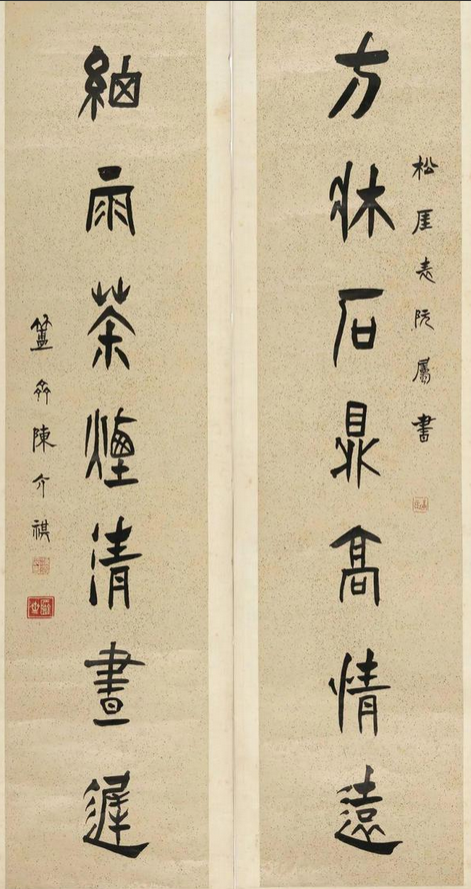 松厓表阮屬書
方牀石鼎高情遠
細雨茶煙清晝遲
簠齋陳介祺